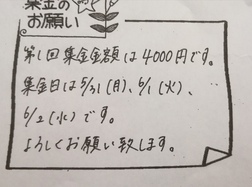 集金の
お願い
第1回集金金額は4000円です。
集金日は5/31(月)、6/1(火)、
6/2(水)です。
よろしくお願い致します。